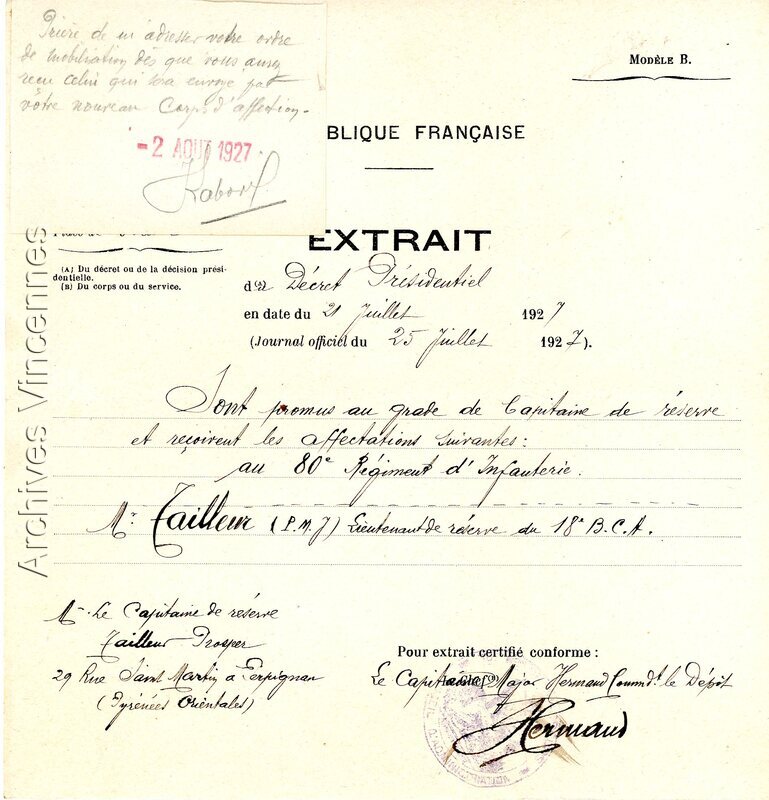 Prière de m'adresser votre ordre
de mobilisation dès que vous aurez
reçu celui qui sera envoyé par
votre nouveau Corps d'affection.
-2 AOUT 1927
MODÈLE B.
BLIQUE FRANÇAISE
EXTRAIT
(A) Du décret ou de la décision prési-
dentielle.
(B) Du corps ou du service.
du Décret Présidentiel
en date du 21 Juillet 1927
(Journal officiel du 25 Juillet 1927).
Sont promus au grade de Capitaine de réserve
et reçoivent les affectations suivantes:
au 80e Régiment d'Infanterie.
Mr Tailleur (P.M.J) Lieutenant de réserve du 18e B.C.A.
Mr Le Capitaine de réserve
Tailleur Prosper
29 Rue Saint Martin à Perpignan
(Pyrénées Orientales)
Pour extrait certifié conforme :
Le Capitaine Major Hermand Commdt le Dépôt
Hermand
Archives Vincennes